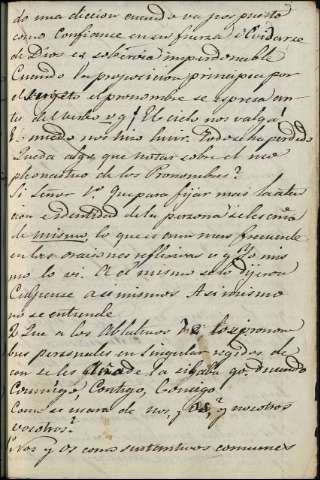 do una diccion cuando va pospuesto
como Confiarse en su fuerza i olvidarse
de Dios es soberbia imperdonable
Cuando la proposicion principia por
el sugeto el pronombre se espresa an-
tes del verbo v g! El cielo nos valga!
El miedo nos hizo huir. Todo se ha perdido
Queda algo que notar sobre el uso
pleonastico de los Pronombres?
Si señor 1o Que para fijar mas la aten
cion e identidad de la persona se les añade
de mismo lo que es aun mas frecuente
en las oraciones reflexivas v g Yo mis
mo lo vi. A el mismo se lo dijeron
Culpense a si mismos A si mismo
no se entiende
2 Que a los Ablativos de los pronom
bres personales en singular regidos de
con se les añade la silaba go, diciendo
Conmigo, Contigo, Consigo.
Como se usara de nos, y os, y nosotros
vosotros?
Nos y os como sustantivos comunes